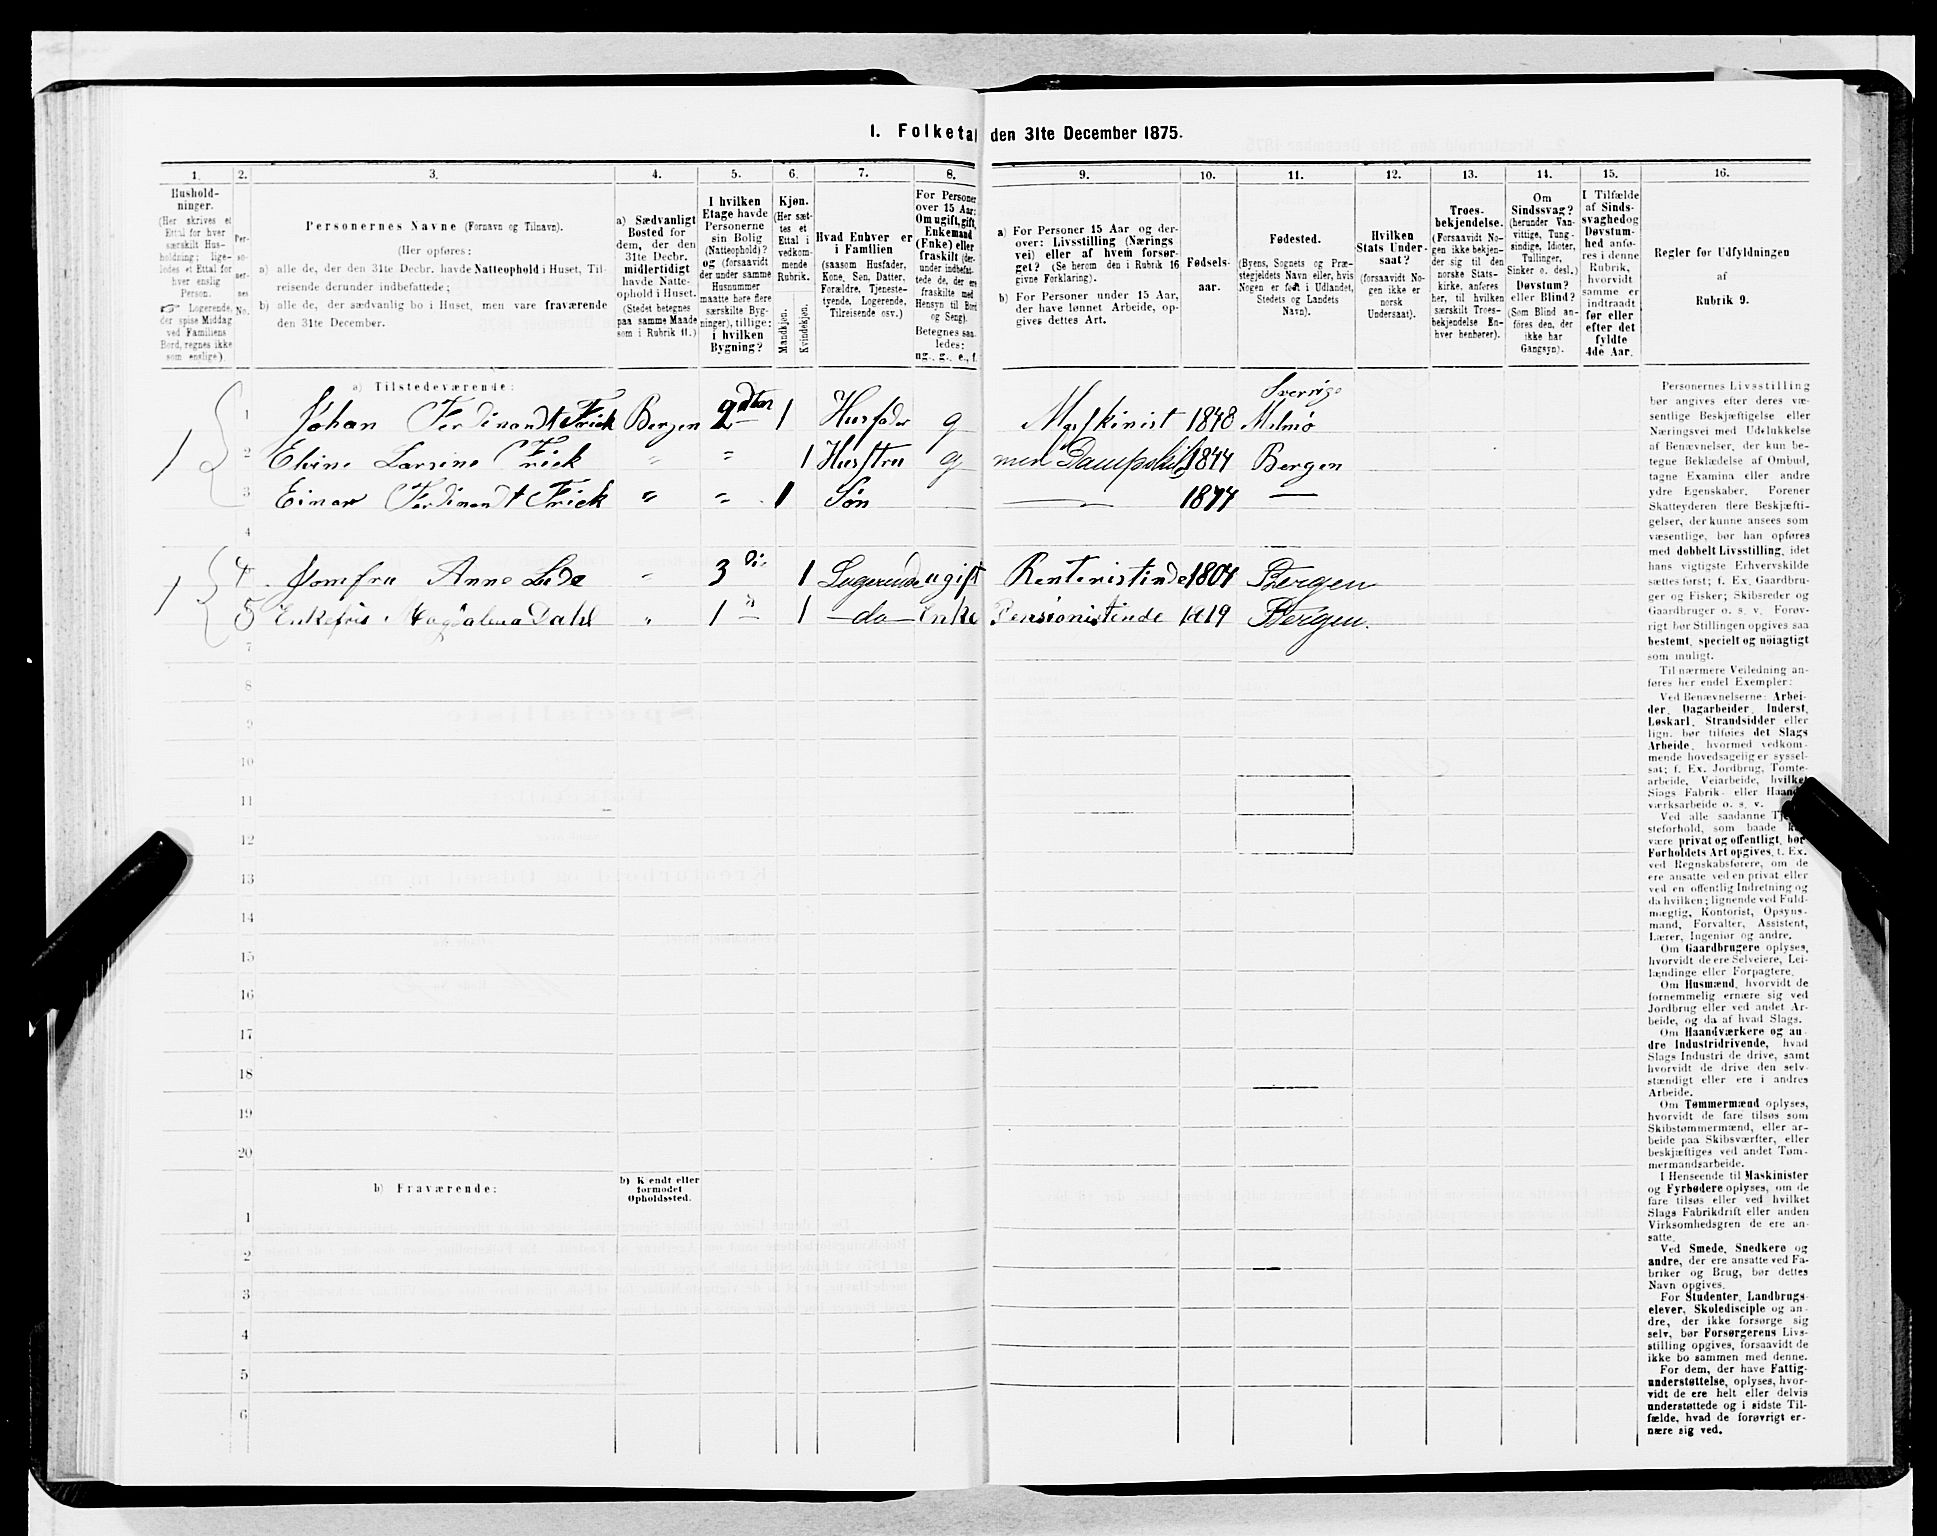 1. Folketal den 31te December 1875.
1. 2. 3. 4. 5. 6. 7. 8. 9. 10. 11. 12. 13. 14. 15. 16.
Hushold-
ninger.
(Her skrives et
Ettal for hver
særskilt Hus-
holdning; lige-
ledes et Ettal for
hver enslig
Person.
☞ Logerende,
der spise Middag
ved Familiens
Bord, regnes ikke
som enslige).
Per-
so-
ner-
nes
No.
Personernes Navne (Fornavn og Tilnavn).
(Her opføres:
a) alle de, der den 31te Decbr. havde Natteophold i Huset, Til-
reisende derunder indbefattede;
b) alle de, der sædvanlig bo i Huset, men vare fraværende
den 31te December.
a) Sædvanligt
Bosted for
dem, der den
31te Decbr.
midlertidigt
havde Natte-
ophold i Huset.
(Stedet betegnes
paa samme Maade
som i Rubrik 11.)
I hvilken
Etage havde
Personerne
sin Bolig
(Natteophold)?
og (forsaavidt
der under samme
Husnummer
maatte høre flere
særskilte Byg-
ninger), tillige:
i hvilken
Bygning?
Kjøn.
(Her sæt-
tes et
Ettal i
vedkom-
mende
Rubrik.
Mandkjøn.
Kvindekjøn.
Hvad Enhver er
i Familien
(saasom Husfader,
Kone, Søn, Datter,
Forældre, Tjeneste-
tyende, Logerende,
Tilreisende osv.)
For Personer
over 15 Aar:
Om ugift, gift,
Enkemand
(Enke) eller
fraskilt (der-
under indbefat-
tede de, der ere
fraskilte med
Hensyn til Bord
og Seng).
Betegnes saa-
ledes:
ug., g., e., f.
a) For Personer 15 Aar og der-
over: Livsstilling (Nærings
vei) eller af hvem forsør-
get? (Se herom den i Rubrik 16
givne Forklaring).
b) For Personer under 15 Aar,
der have lønnet Arbeide, op-
gives dettes Art.
Fødsels-
aar.
Fødested.
(Byens, Sognets og Præ-
stegjeldets Navn eller, hvis
Nogen er født i Udlandet,
Stedets og Landets
Navn).
Hvilken
Stats Under-
saat?
(forsaavidt No-
gen ikke er
norsk
Undersaat).
Troes-
bekjendelse.
(Forsaavidt No-
gen ikke bekjen-
der sig til den
norske Stats-
kirke, anføres
her, til hvilken
særskilt Troes-
bekjendelse En-
hver henhører).
Om
Sindssvag?
(herunder Van-
vittige, Tung-
sindige, Idioter,
Tullinger,
Sinker o. desl.)
Døvstum?
eller Blind?
(Som Blind an-
føres den, der
ikke har
Gangsyn).
I Tilfælde
af Sinds-
svaghed og
Døvstum-
hed anfø-
res i denne
Rubrik,
hvorvidt
samme er
indtraadt
før eller
efter det
fyldte
4de Aar.
Regler for Udfyldningen
af
Rubrik 9.
a) Tilstedeværende:
1 1 Johan Ferdinandt Frick Bergen 2den 1 Husfader g Maskinist 1848 Sverige Malmø
2 Elvine Larsine Frick " " 1 Hustru g med Dampskib 1844 Bergen
3 Einar Ferdinandt Frick " " 1 Søn — 1874 —
4
1 4 Jomfru Anne Lide " 3 di 1 Logerende ugift Rentenistinde 1804 Bergen
5 Enkefru Magdalena Dahl " 1 1 do Enke Pensionistinde 1819 Bergen.
7
8
9
10
11
12
13
14
15
16
17
18
19
20
b) Fraværende:
b) Kjendt eller
formodet
Opholdssted.
1
2
3
4
5
6
Personernes Livsstilling
bør angives efter deres væ-
sentlige Beskjæftigelse eller
Næringsvei med Udelukkelse
af Benævnelser, der kun be-
tegne Beklædelse af Ombud,
tagne Examina eller andre
ydre Egenskaber. Forener
Skatteyderen flere Beskjæfti-
gelser, der kunne ansees som
væsentlige, bør han opføres
med dobbelt Livsstilling, idet
hans vigtigste Erhvervskilde
sættes først; f. Ex. Gaardbru-
ger og Fisker; Skibsreder og
Gaardbruger o. s. v. Forøv-
rigt bør Stillingen opgives saa
bestemt, specielt og nøiagtigt
som muligt.
Til nærmere Veiledning an-
føres her endel Exempler:
Ved Benævnelserne: Arbei-
der, Dagarbeider, Inderst,
Løskarl, Strandsidder eller
lign. bør tilføies det Slags
Arbeide, hvormed vedkom-
mende hovedsagelig er syssel-
sat; f. Ex. Jordbrug, Tømte-
arbeide, Veiarbeide, hvilket
Slags Fabrik- eller Haand-
værksarbeide o. s. v.
Ved alle saadanne Tje-
steforhold, som baade k
være privat og offentligt, bør
Forholdets Art opgives, f. Ex.
ved Regnskabsførere, om de
ere ansatte ved en privat eller
ved en offentlig Indretning og
da hvilken; lignende ved Fuld-
mægtig, Kontorist, Opsyns-
mand, Forvalter, Assistent,
Lærer, Ingeniør og andre.
Om Gaardbrugere oplyses,
hvorvidt de ere Selveiere, Lei-
lændinge eller Forpagtere.
Om Husmænd, hvorvidt de
fornemmelig ernære sig ved
Jordbrug eller ved andet Ar-
beide, og da af hvad Slags.
Om Haandværkere og an-
dre Industridrivende, hvad
Slags Industri de drive, samt
hvorvidt de drive den selv-
stændigt eller ere i andres
Arbeide.
Om Tømmermænd oplyses,
hvorvidt de fare tilsøs som
Skibstømmermænd, eller ar-
beide paa Skibsværfter, eller
beskjæftiges ved andet Tøm-
mermandsarbeide.
I Henseende til Maskinister
og Fyrbødere oplyses, om de
fare tilsøs eller ved hvilket
Slags Fabrikdrift eller anden
Virksomhedsgren de ere an-
satte.
Ved Smede, Snedkere og
andre, der ere ansatte ved Fa-
briker og Brug, bør dettes
Navn opgives.
For Studenter, Landbrugs-
elever, Skoledisciple og an-
dre, der ikke forsørge sig
selv, bør Forsørgerens Livs-
stilling opgives, forsaavidt de
ikke bo sammen med denne.
For dem, der have Fattig-
understøttelse, oplyses, hvor-
vidt de ere helt eller delvis
understøttede og i sidste Til-
fælde, hvad de forøvrigt er-
nære sig ved.